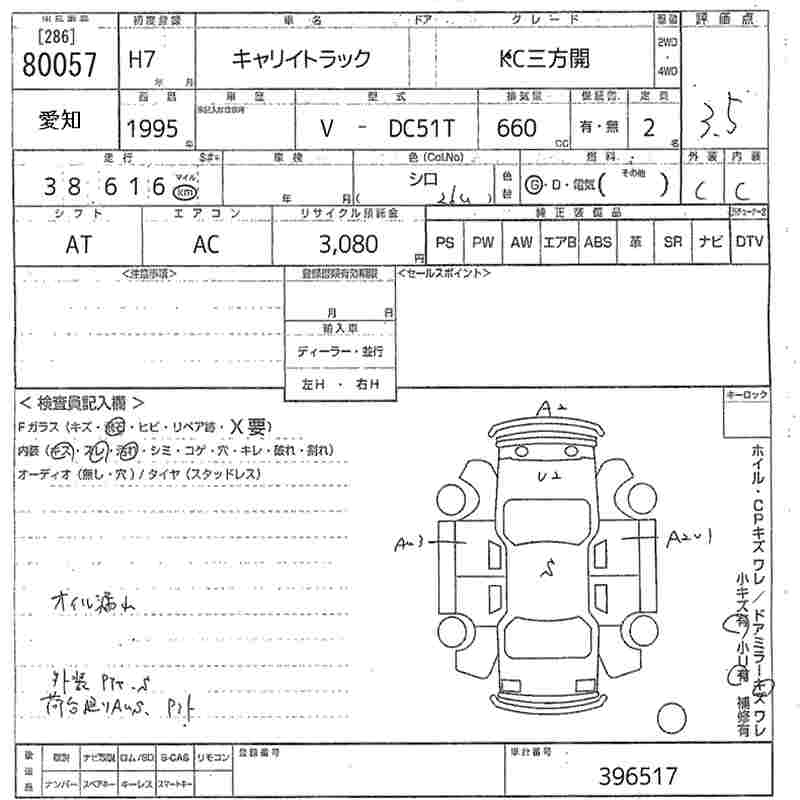 [286]
80057
初度登録
車名
ドア
グレード
評価点
H7
年 月
キャリイトラック
KC三方開
2WD
・
4WD
3.5
愛知
1995
年
車歴
型式
V - DC51T
排気量
660
CC
有・無
定員
2
名
走行
38616
マイル
km
車検
年 月
色(ColNo)
シロ
26U
色替
燃料
G・D・電気( その他 )
外装
C
内装
C
シフト
AT
エアコン
AC
リサイクル預託金
3,080
円
純正装備品
PS PW AW エアB ABS 革 SR ナビ DTV
<注意事項>
登録書類有効期限
月 日
輸入車
ディーラー・並行
左H ・ 右H
<セールスポイント>
キーロック
<検査員記入欄>
Fガラス(キズ・飛石・ヒビ・リペア跡・X要)
内装(キズ・スレ・汚れ・シミ・コゲ・穴・キレ・破れ・割れ)
オーディオ(無し・穴)/タイヤ(スタッドレス)
オイル漏れ
外装 Pﾀﾃ.S
荷台廻りAUS、Pﾄﾄ
A2
U2
AU3
A2U1
S
ホイル・CPキズワレ/ドアミラーキズワレ
小キズ有/小U有 補修有
後送品
取説 ナビ取説 ロム/SD B-CAS リモコン
ナンバー スペアキー キーレス スマートキー
登録番号
車台番号
396517